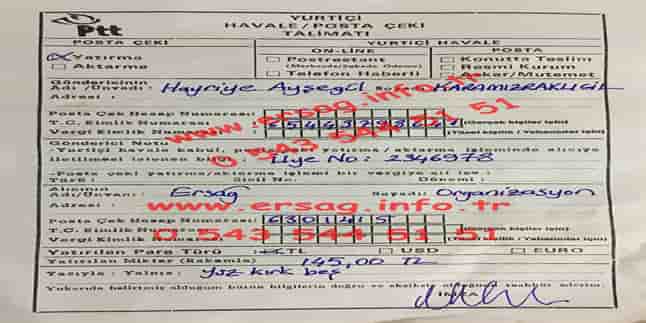 Ptt
YURTİÇİ
HAVALE/POSTA ÇEKİ
TALİMATI
POSTA ÇEKİ
YURTİÇİ HAVALE
ON-LINE
POSTA
Yatırma
Aktarma
Postrestant
Telefon Haberli
Konutta Teslim
Resmi Kurum
Asker/Mutemet
Göndericinin
Adı/Unvanı: Hayriye Ayşegül Soyadı: KARAMIZRAKLIGİL
Adresi:
Posta Çek Hesap Numarası
T.C. Kimlik Numarası
Vergi Kimlik Numarası
www.ersag.info.tr
0 543 544 51 51
Gönderici Notu
-Yurtiçi havale kabul, posta çeki yatırma/aktarma işleminde alıcıya
iletilmesi istenen bilgi: Üye No: 2346978
-Posta çeki yatırma/aktarma işlemi bir vergiye ait ise:
Türü: Sicil No: Dönemi:
Alıcının
Adı/Unvanı: Ersag Soyadı: Organizasyon
Adresi:
www.ersag.info.tr
Posta Çek Hesap Numarası 6301415
T.C. Kimlik Numarası
Vergi Kimlik Numarası
0 543 544 51 51
Yatırılan Para Türü TL USD EURO
Yatırılan Miktar (Rakamla) 145,00 TL
Yazıyla: Yalnız: yüz kırk beş
Yukarıda belirtmiş olduğum bütün bilgilerin doğru ve eksiksiz olduğunu taahhüt ederim.
İMZA